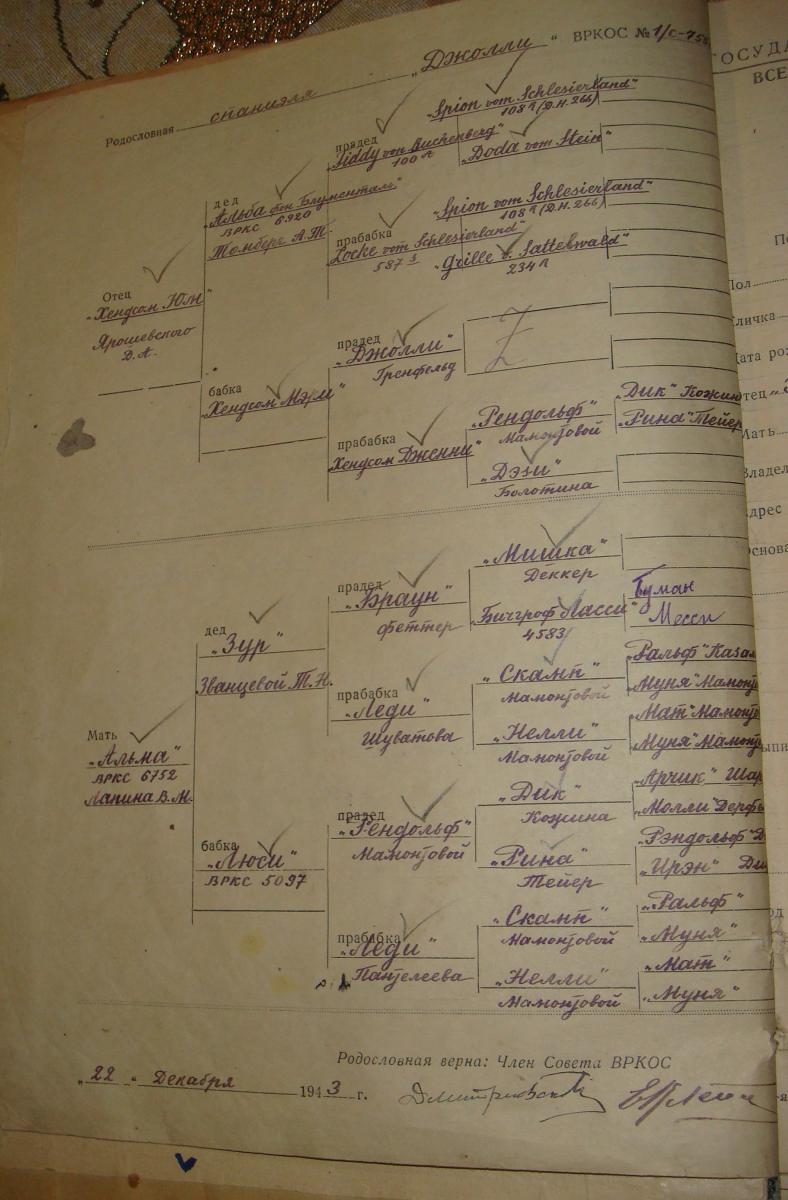 Родословная спаниэля „Джолли“ ВРКОС № 1/с-75
Отец
„Хендсом Юм“
Ярошевского
Д.А.
дед
„Альба фон Блументаль“
ВРКС 6920
Томберг А.Т.
бабка
„Хендсом Мэри“
прадед
Siddy von Buchenberg“
100 л
прабабка
Locke vom Schlesierland“
587 з
прадед
„Джолли“
Гренфельд
прабабка
Хендсом Дженни“
„Spion vom Schlesierland“
108 л (D.H. 266)
„Doda vom Stein“
„Spion vom Schlesierland“
108 л (D.H. 266)
„Grille v. Sattelwald“
234 л
Z
„Рендольф“
Мамонтовой
„Дэзи“
Болотина
„Дик“ Кожин
„Рина“ Тейер
Мать
„Альма“
ВРКС 6752
Лапина В.М.
дед
„Зур“
Званцевой Т.Н.
бабка
„Люси“
ВРКС 5097
прадед
„Браун“
Феттер
прабабка
„Леди“
Шуватова
прадед
„Рендольф“
Мамонтовой
прабабка
„Леди“
Пантелеева
„Мишка“
Деккер
„Бичгроф Ласси“
4583
„Скамп“
Мамонтовой
„Нелли“
Мамонтовой
„Дик“
Кожина
„Рина“
Тейер
„Скамп“
Мамонтовой
„Нелли“
Мамонтовой
Буман
Месси
„Ральф“ Каза
„Муня“ Мамонт
„Мат“ Мамонт
„Муня“ Мамонт
„Арчик“ Шар
„Молли“ Дерф
„Рэндольф“ Д
„Ирэн“ Ди
„Ральф“
„Муня“
„Мат“
„Муня“
Родословная верна: Член Совета ВРКОС
„22“ Декабря 1943 г.
ГОСУДА
ВСЕ
По
Пол
Кличка
Дата рож
Отец
Мать
Владел
Адрес
Основа